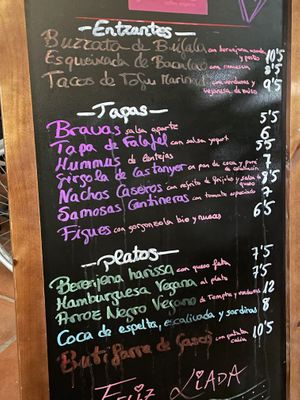 Entrantes
Buzzata de Bufala con berenjena asada y pesto 10'5
Esqueixada de Bacalao con romesco 8'5
Tacos de Tofu Marinat con verduras y veganesa de miso 9'5
Tapas
Bravas salsa aparte 5'5
Tapa de Falafel con salsa yogurt 6
Hummus de lentejas 5'5
Girgola de Castanyer en pan de coca y puré 7
Nachos Caseros con refrito de frijoles y salsa de queso 8'5
Samosas Cantineras con tomate especiado 7
Figues con gorgonzola bio y nueces 6'5
Platos
Berenjena harissa con queso feta 7'5
Hamburguesa Vegana al plato 7'5
Arroz Negro Vegano de Tempeh y verduras 12
Coca de espelta, escalivada y sardinas 8
Butifarra de Gascó con patata caliu 10'5
FELIZ LIADA